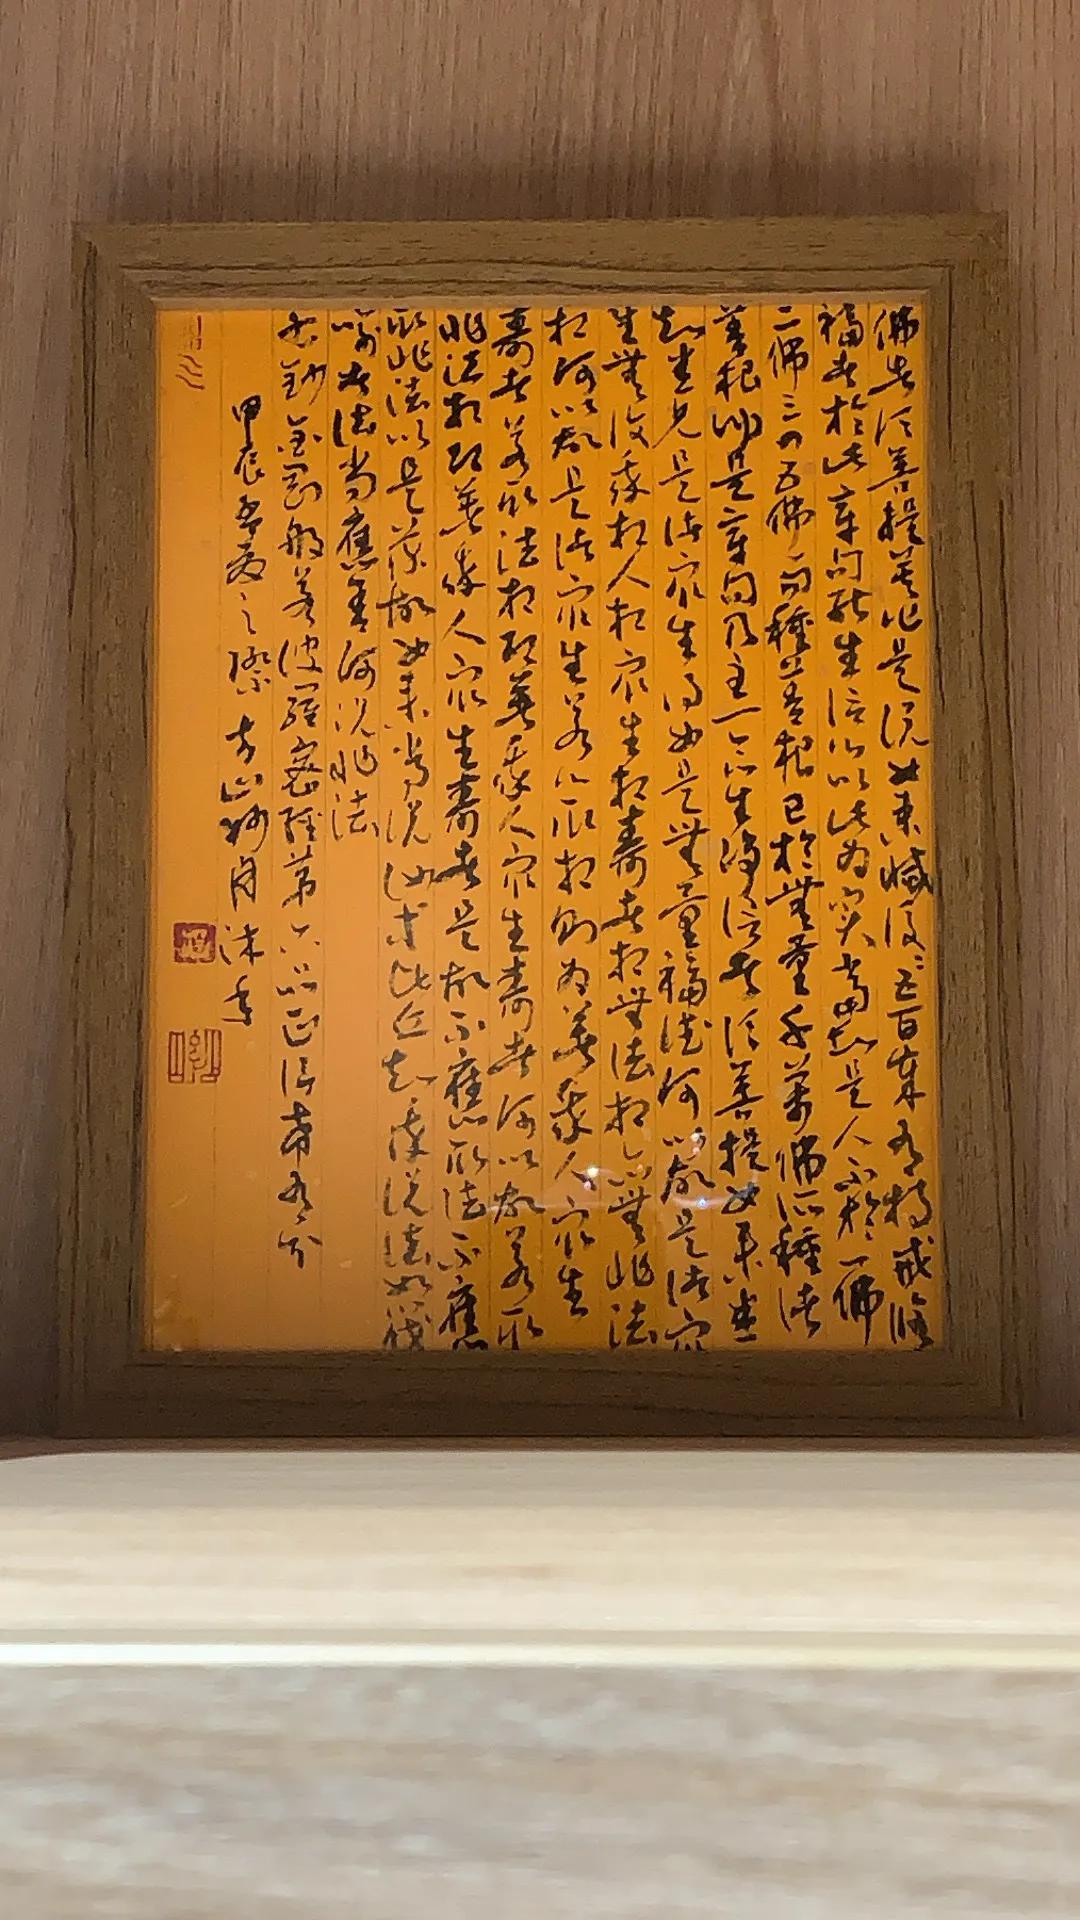 佛告須菩提莫作是說如來滅後後五百歲有持戒修
福者於此章句能生信心以此為實當知是人不於一佛
二佛三四五佛而種善根已於無量千萬佛所種諸
善根聞是章句乃至一念生淨信者須菩提如來悉
知悉見是諸眾生得如是無量福德何以故是諸眾
生無復我相人相眾生相壽者相無法相亦無非法
相何以故是諸眾生若心取相則為著我人眾生
壽者若取法相即著我人眾生壽者何以故若取
非法相即著我人眾生壽者是故不應取法不應
取非法以是義故如來常說汝等比丘知我說法如筏
喻者法尚應捨何況非法
書鈔金剛般若波羅密經第六品正信希有分
甲辰孟夏之際 月沐手